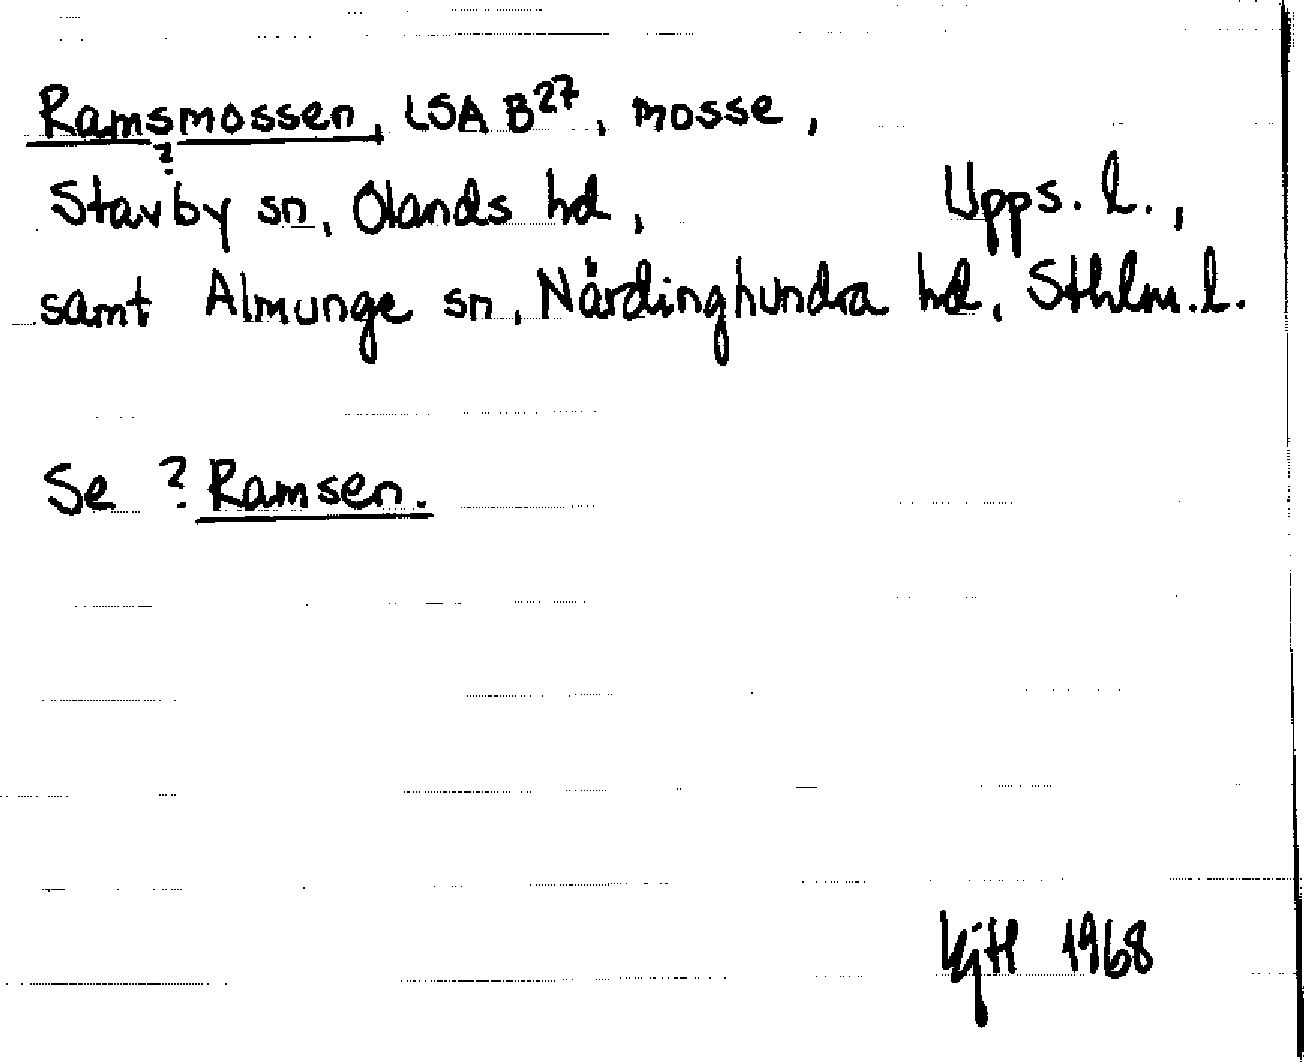 Ramsmossen, LSA B27, mosse,
?
Stavby sn, Olands hd, Upps. l.,
samt Almunge sn, Närdinghundra hd, Sthlm. l.
Se ? Ramsen.
1968